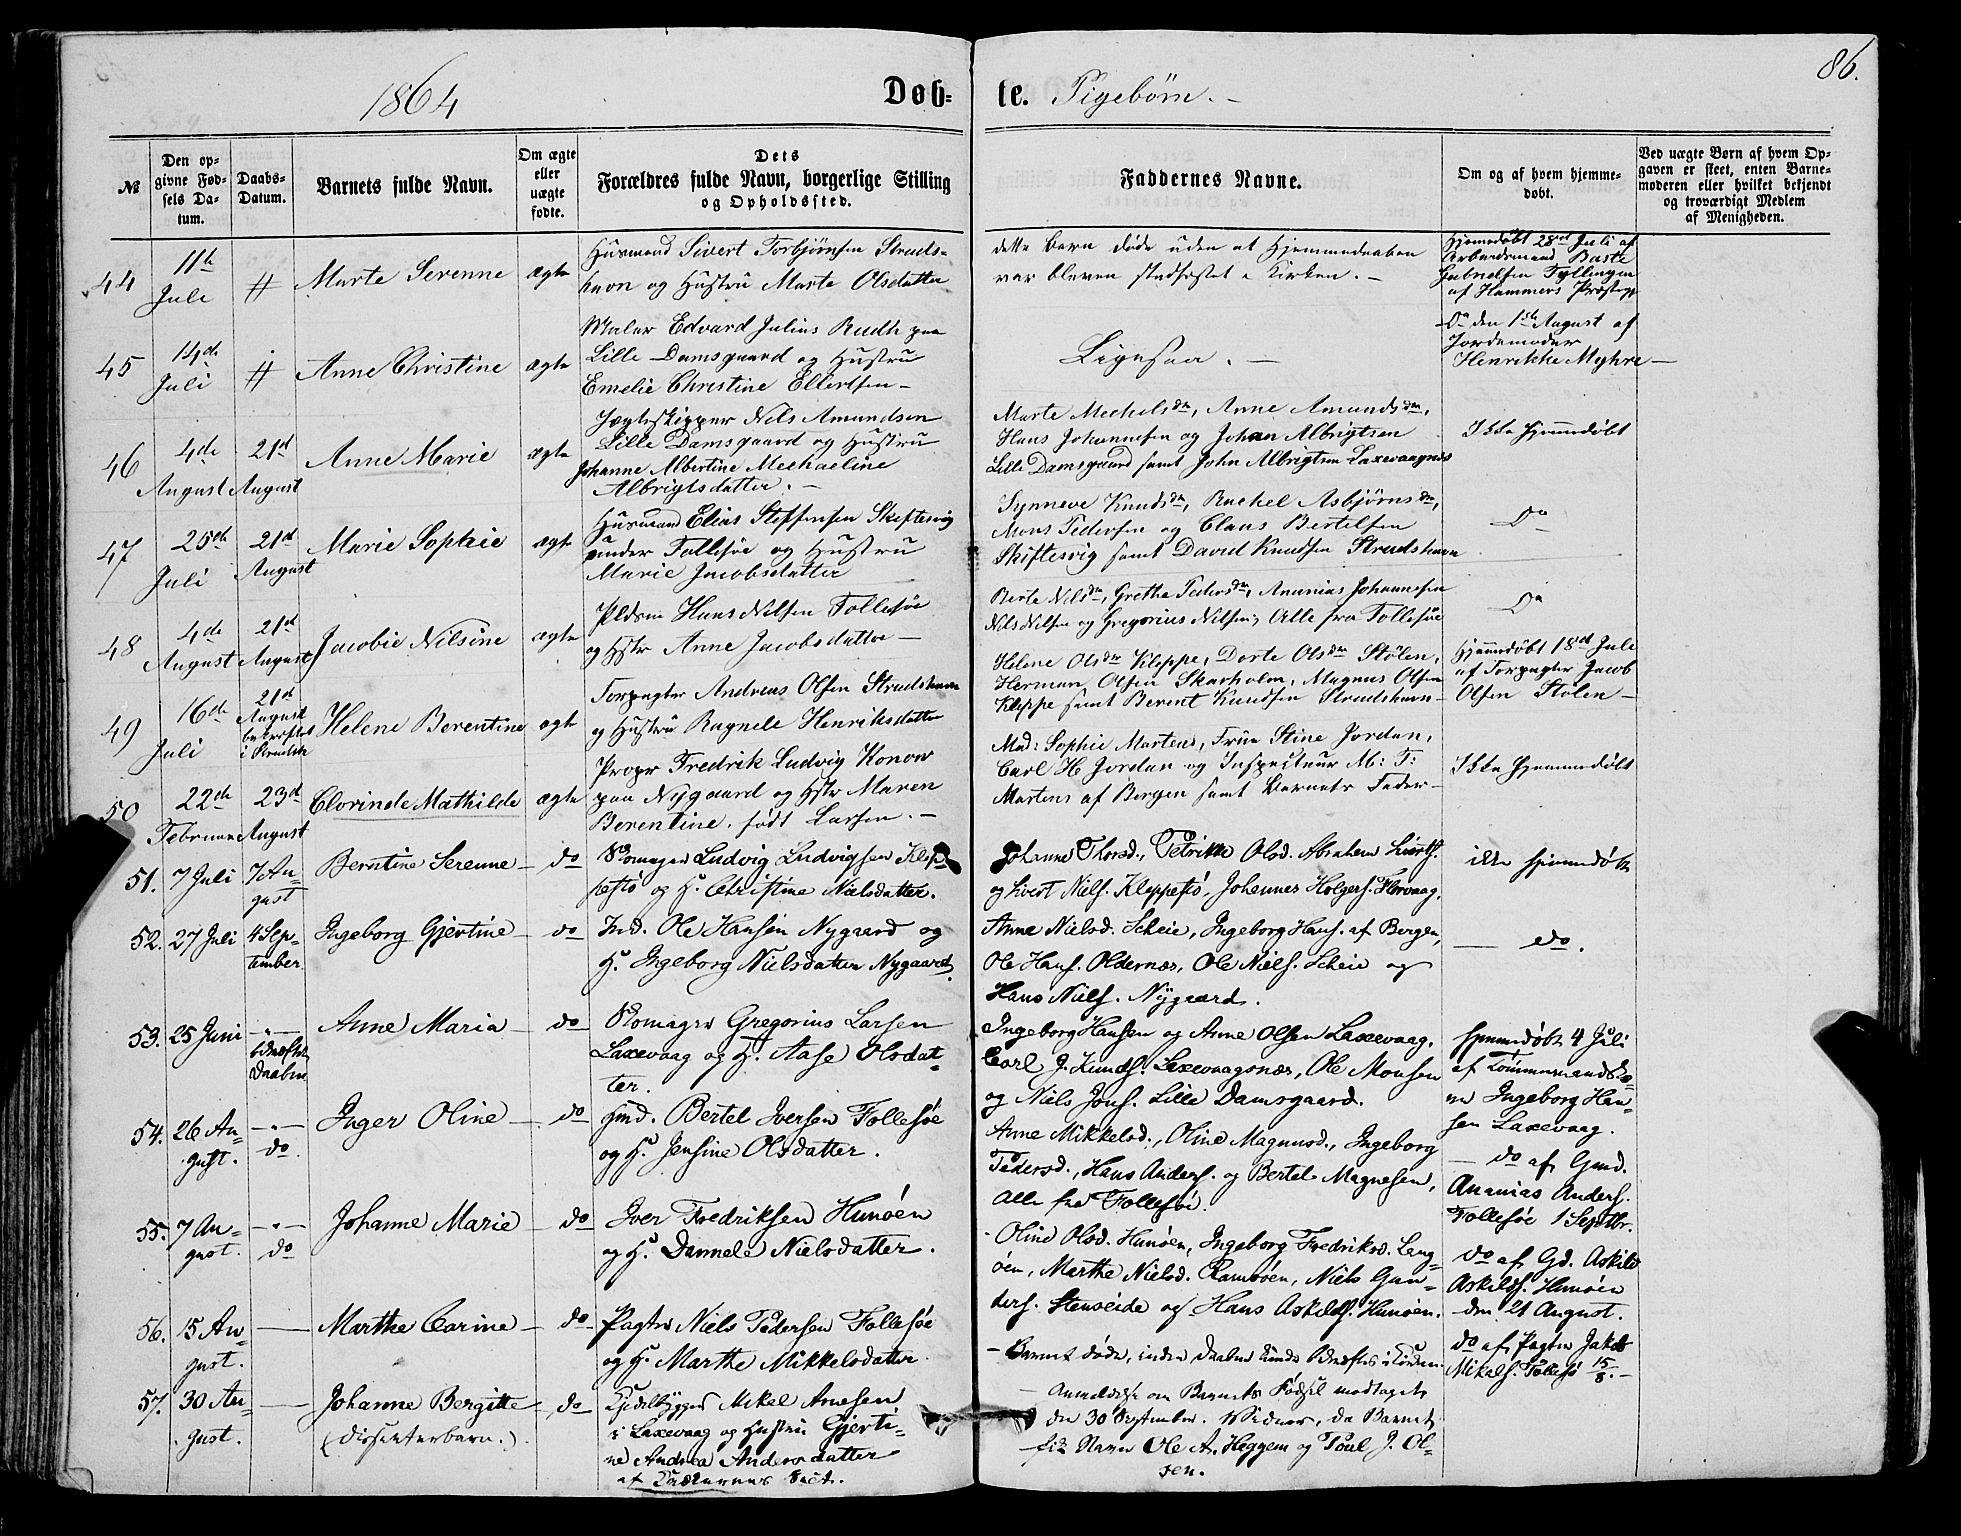 86.
1864 Døb- te. Pigebørn. -
№
Den op-
givne Fød-
sels Da-
tum.
Daabs-
Datum.
Barnets fulde Navn.
Om ægte
eller
uægte
fødte.
Dets
Forældres fulde Navn, borgerlige Stilling
og Opholdssted.
Faddernes Navne.
Om og af hvem hjemme-
døbt.
Ved uægte Børn af hvem Op-
gaven er skeet, enten Barne-
moderen eller hvilket bekjendt
og troværdigt Medlem
af Menigheden.
44
11te
Juli
#
Marte Serenne
ægte
Husmand Sivert Torbjørnsen Struds-
havn og Hustru Marte Olsdatter
dette barn døde uden at Hjemmedaaben
var bleven stadfæstet i Kirken. -
Hjemedøbt 28de Juli af
Arbeidsmand Baste
Gabrielsen Tyllingen
af Hammers Præstegj
45
14de
Juli
#
Anne Christine
ægte
Maler Edvard Julius Rudh paa
Lille Damsgaard og Hustru
Emelie Christine Ellertsen -
Ligesaa. -
Do den 1ste August af
Jordemoder
Henrikke Myhre -
46
4de
August
21d
August
Anne Marie
ægte
Jægteskipper Nils Amundsen
Lille Damsgaard og Hustru
Johanne Albertine Mechaeline
Albrigtsdatter. -
Marte Mechelsdtr, Anne Amundsdtr,
Hans Johannesen og Johan Albrigtsen
Lille Damsgaard samt John Albrigtsen Laxevaagnæs
Ikke Hjemmedøbt
47
25de
Juli
21d
August
Marie Sophie
ægte
Husmand Elias Steffensen Skiftesvig
under Follesøe og Hustru
Marie Jacobsdatter
Synneve Knudsdtr, Rachel Asbjørnsdtr,
Mons Pedersen og Claus Bertelsen
Skiftesvig samt David Knudsen Strudshavn
Do
48
4de
August
21d
August
Jacobie Nilsine
ægte
Pldsm Hans Nilsen Follesøe
og Hstr Anne Jacobsdatter -
Berte Nilsdtr, Grethe Pedersdtr, Ananias Johannesen
Nils Nilsen og Gregorius Nilsen, Alle fra Follesøe
Do
49
16de
Juli
21d
August
bekræftet
i Strudsh
Helene Berentine
ægte
Forpagter Andreas Olsen Strudshavn
og Hustru Ragnele Henriksdatter
Helene Olsdtr Kleppe, Dorte Olsdtr Stølen,
Herman Olsen Skarholm, Magnus Olsen
Kleppe samt Berent Knudsen Strudshavn -
Hjemmedøbt 18de Juli
af Forpagter Jacob
Olsen Stølen -
50
22de
Februar
23d
August
Clorinde Mathilde
ægte
Propr Fredrik Ludvig Konow
paa Nygaard og Hstr Maren
Berentine, født Larsen. -
Mad: Sophie Martens, Frue Stine Jordan,
Carl H Jordan og Inspecteur M: T:
Martens af Bergen samt Barnets Fader -
Ikke Hjemmedøbt
51.
7 Juli
7 Au-
gust
Berntine Serenne
do
Skomager Ludvig Ludvigsen Klep-
pestø og H. Christine Nielsdatter.
Johanne Thorsd., Petrikke Olsd. Abraham Sivertf.
og Sivert Nielf. Kleppestø, Johannes Holgerf. Florvaag.
ikke hjemmedøbt
52.
27 Juli
4 Sep-
tember
Ingeborg Gjertine
do
Ind. Ole Hansen Nygaard og
H. Ingeborg Nielsdatter Nygaard.
Anne Nielsd. Scheie, Ingeborg Hansf. af Bergen,
Ole Hanf. Oldernæs, Ole Nielf. Scheie og
Hans Nielf. Nygaard.
do.
53.
25 Juni
- " -
bekræftet
Daaben
Anne Maria
do
Skomager Gregorius Larsen
Laxevaag og H. Aase Olsdat-
ter.
Ingeborg Hansen og Anne Olsen Laxevaag,
Carl J. Knudf. Laxevaagsnæs, Ole Monsen
og Niels Jonf. Lille Damsgaard.
Hjemmedøbt 4 Juli
af Tømmermandsko-
ne Ingeborg Han-
sen Laxevaag.
54.
26 Au-
gust.
- " -
do.
Inger Oline
do
Hmd. Bertel Iversen Follesøe
og H. Jensine Olsdatter.
Anne Mikkelsd., Oline Magnusd., Ingeborg
Pedersd., Hans Andersf. og Bertel Magnesen,
alle fra Follesøe.
do af Gmd.
Ananias Andersf.
Follesøe 1 Septbr.
55.
7 Au-
gust.
- " -
do
Johanne Marie
do
Iver Fredriksen Hunøen
og H. Dannele Nielsdatter.
Oline Olsd. Hunøen, Ingeborg Fredriksd. Lang-
øen, Marthe Nielsd. Ramsøen, Niels Gun-
ders. Stenseide og Hans Askeldsf. Hunøen.
do af Gd. Askild
Askildsf. Hunøen
den 21 August.
56.
15 Au-
gust.
Marthe Carine
do
Pagter Niels Pedersen Follesøe
og H. Marthe Mikkelsdatter.
Barnet døde, inden Daaben kunde bekræftes i Kirken.
do af Pagter Jakob
Mikelf. Follesø 15/8. -
57.
30 Au-
gust.
Johanne Bergitte
(dissenterbarn.)
do
Kjedelbygger Mikel Arnesen
i Laxevaag og Hustru Gjerti-
ne Andrea Andersdatter
af Kvækernes Sect.
Anmeldelse om Barnets Fødsel modtaget
den 30 September. Vidner, da Barnet
fik Navn Ole A. Heggem og Poul J. Ol-
sen.